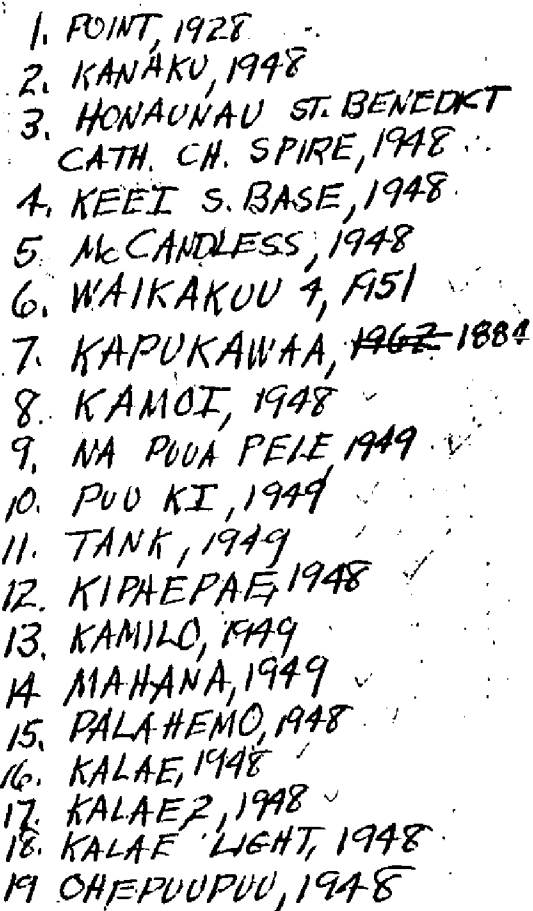 1. POINT, 1928
2. KANAKU, 1948
3. HONAUNAU ST. BENEDICT
CATH. CH. SPIRE, 1948
4. KEEI S. BASE, 1948
5. McCANDLESS, 1948
6. WAIKAKUU 4, 1951
7. KAPUKAWAA, 1962 1884
8. KAMOI, 1948
9. NA PUUA PELE, 1949
10. PUU KI, 1949
11. TANK, 1949
12. KIPAEPAE, 1948
13. KAMILO, 1949
14 MAHANA, 1949
15. PALAHEMO, 1948
16. KALAE, 1948
17. KALAE 2, 1948
18. KALAE LIGHT, 1948
19 OHEPUUPUU, 1948